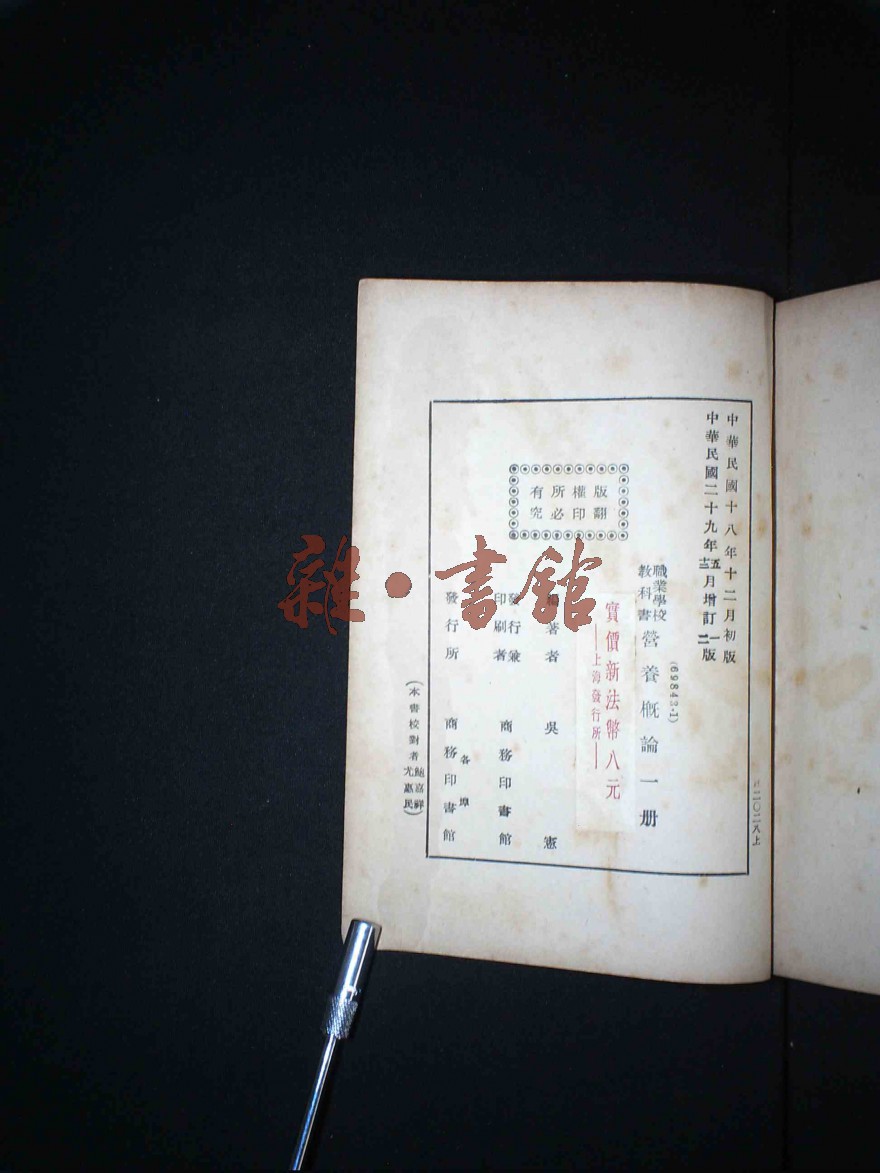 中華民國十八年十二月初版
中華民國二十九年五月增訂一版
十二 二
八二〇二八上
版權所有
翻印必究
職業學校
教科書
營養概論一册
(69843·1)
實價新法幣八元
—上海發行所—
編著者 吳憲
發行兼
印刷者 商務印書館
發行所 各埠 商務印書館
(本書校對者 鮑嘉祥 尤惠民)
雜·書館